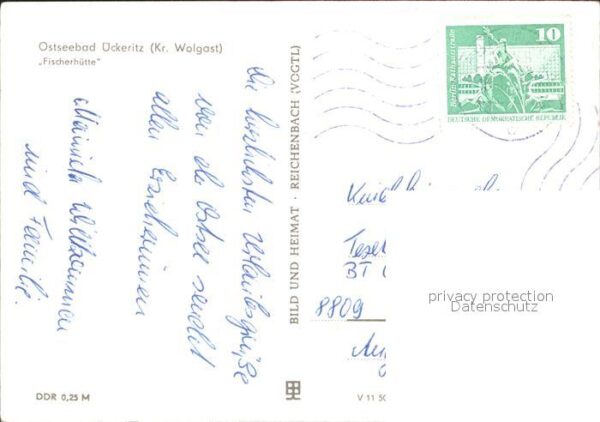 Ostseebad Ückeritz (Kr. Wolgast)
„Fischerhütte"
Die herzlichsten Urlaubsgrüße
von der Ostsee sendet
allen Erzieherinnen
Manuela
und Familie.
BILD UND HEIMAT · REICHENBACH (VOGTL)
10
Berlin, Rathausstraße
DEUTSCHE DEMOKRATISCHE REPUBLIK
BT
8809
privacy protection
Datenschutz
DDR 0,25 M
V 11 50